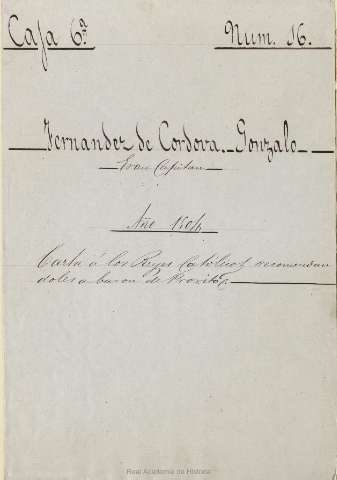 Caja 6ª Num. 16.
Fernandez de Cordova. Gonzalo
Gran Capitan
Año 1504
Carta á los Reyes Catolicos recomendan
doles a baron de
Real Academia de Historia